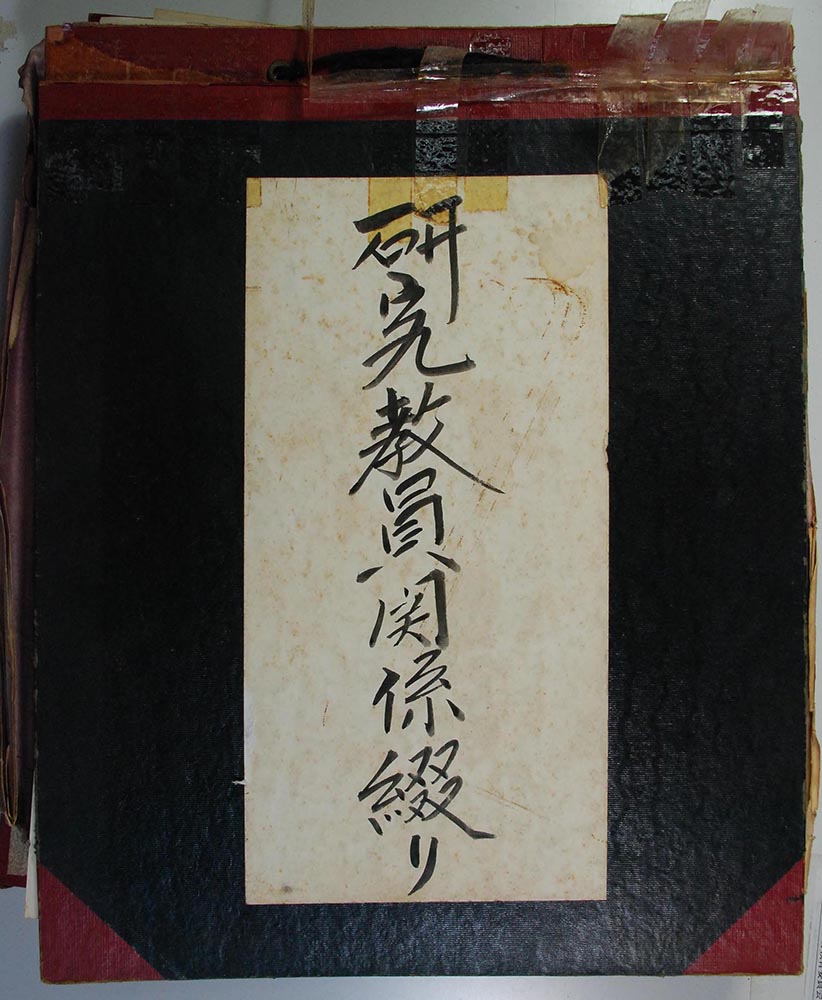 研究教員関係綴り